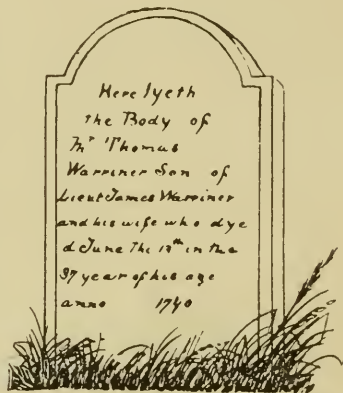 Here lyeth
the Body of
Mr Thomas
Warriner Son of
Lieut James Warriner
and his wife who dye
d June The 12th in the
37 year of his age
anno 1740